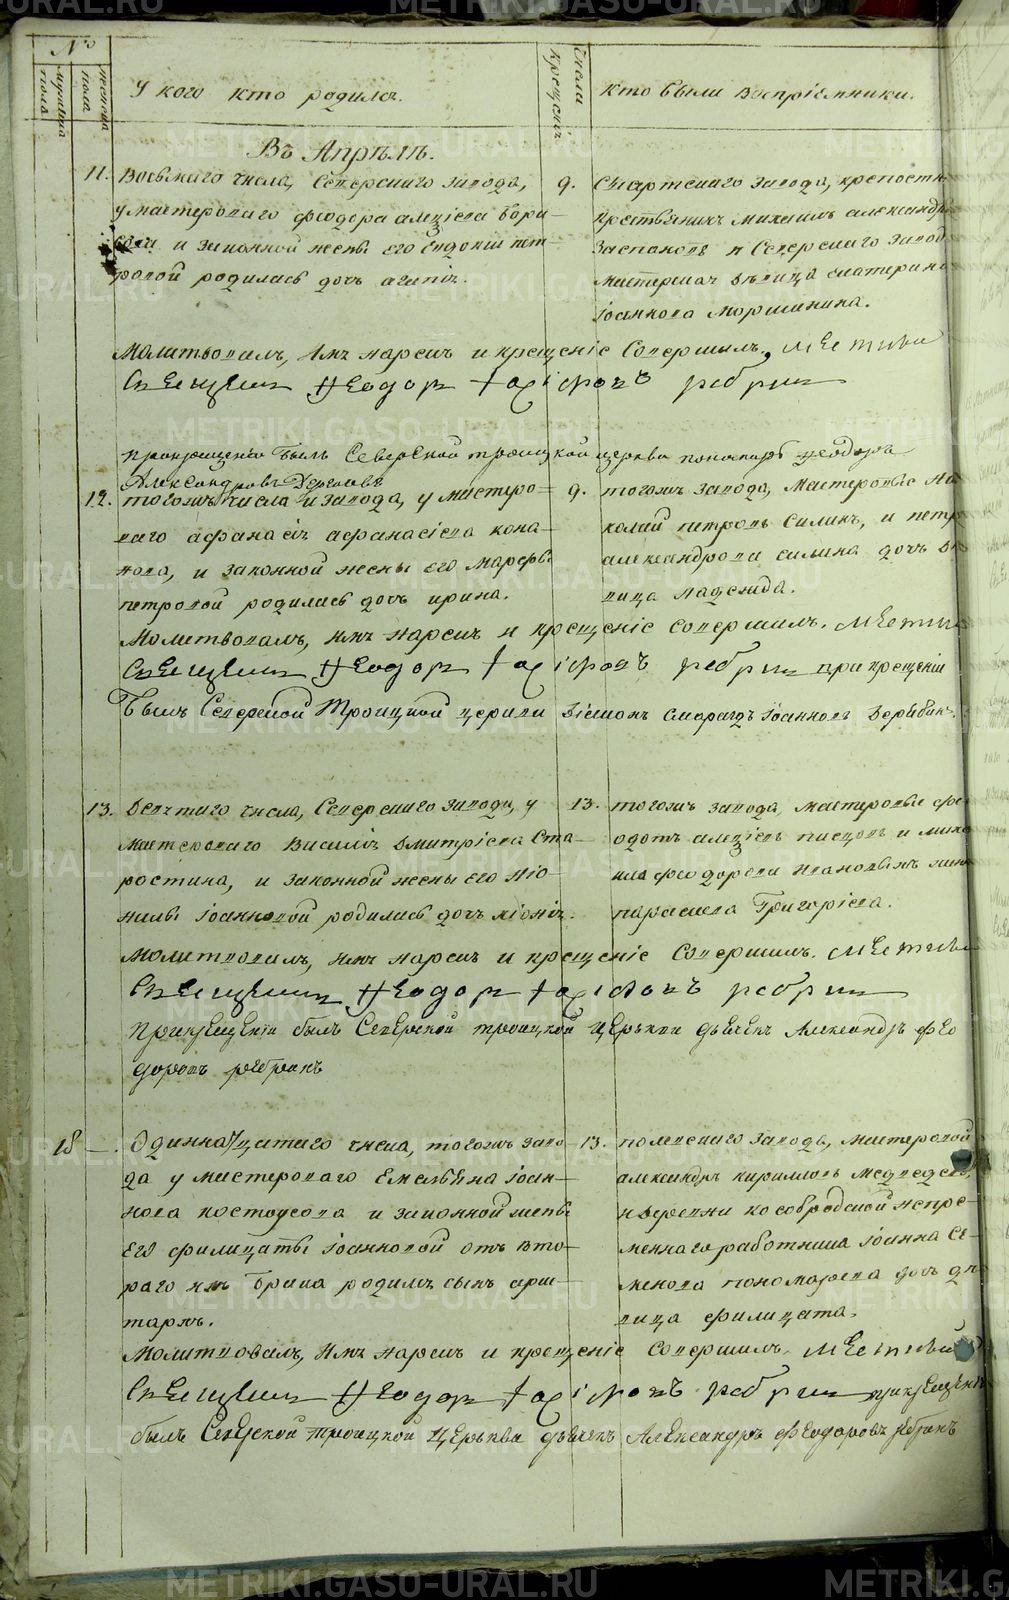 №
мужеска пола
женска пола
У кого кто родился.
Числа крещенiя
Кто были воспрiемники.
Въ Апрѣлѣ.
11. Восьмаго числа, Северскаго завода,
у мастероваго Феодора Алексiева Бори-
сова и законной жены его Евдокiи Пет-
ровой родилась дочь Агапiя.
9. Сысертскаго завода, крепостн.
крестьянинъ Михаилъ Александр
и Северскаго завод
мастерская дѣвица Екатерина
Iоаннова Моршинина.
Молитвовалъ, имя нарекъ и крещенiе совершилъ. Местный
Священникъ Феодор Ребрин
При крещенiи былъ Северской Троицкой церкви пономарь Феодоръ
Александровъ
12. тогожъ числа и завода, у мастеро-
ваго Афанасiя Афанасiева Коно-
нова, и законной жены его Марфы
Петровой родилась дочь Ирина.
9. тогожъ завода, мастеровые Ни
колай Петровъ Силинъ, и Петр
Александрова Силина дочь дѣ
вица Надежда.
Молитвовалъ, имя нарекъ и крещенiе совершилъ. Местный
Священникъ Феодор Ребрин при крещенiи
былъ Северской Троицкой церкви дiаконъ Смарагдъ Iоанновъ
13. Девятаго числа, Северскаго завода, у
мастероваго Василiя Дмитрiева Ста-
ростина, и законной жены его Нео-
нилы Iоанновой родилась дочь Лiонiя.
13. тогожъ завода, мастеровые Фе-
одотъ Алексiевъ Писцовъ и Миха
ила Феодорова жена
Параскева Григорiева.
Молитвовалъ, имя нарекъ и крещенiе совершилъ. Местный
Священникъ Феодор Ребрин
При крещенiи былъ Северской Троицкой церкви дьячекъ Александръ Фео
доровъ Ребринъ
18 —. Одиннадцатаго числа, тогожъ заво-
да у мастероваго Емельяна Iоан-
нова Костоусова и законной жены
его Филицаты Iоанновой отъ вто-
раго ихъ брака родился сынъ Ари-
стархъ.
13. Полевскаго завода, мастеровой
Александръ Кириловъ Медведевъ,
и деревни Кособродской непре-
меннаго работника Iоанна Се-
менова Пономарева дочь дѣ
вица Филицата.
Молитвовалъ, имя нарекъ и крещенiе совершилъ. Местный
Священникъ Феодор Ребрин при крещенiи
былъ Северской Троицкой церькви дьячекъ Александръ Феодоровъ Ребринъ
METRIKI.GASO-URAL.RU